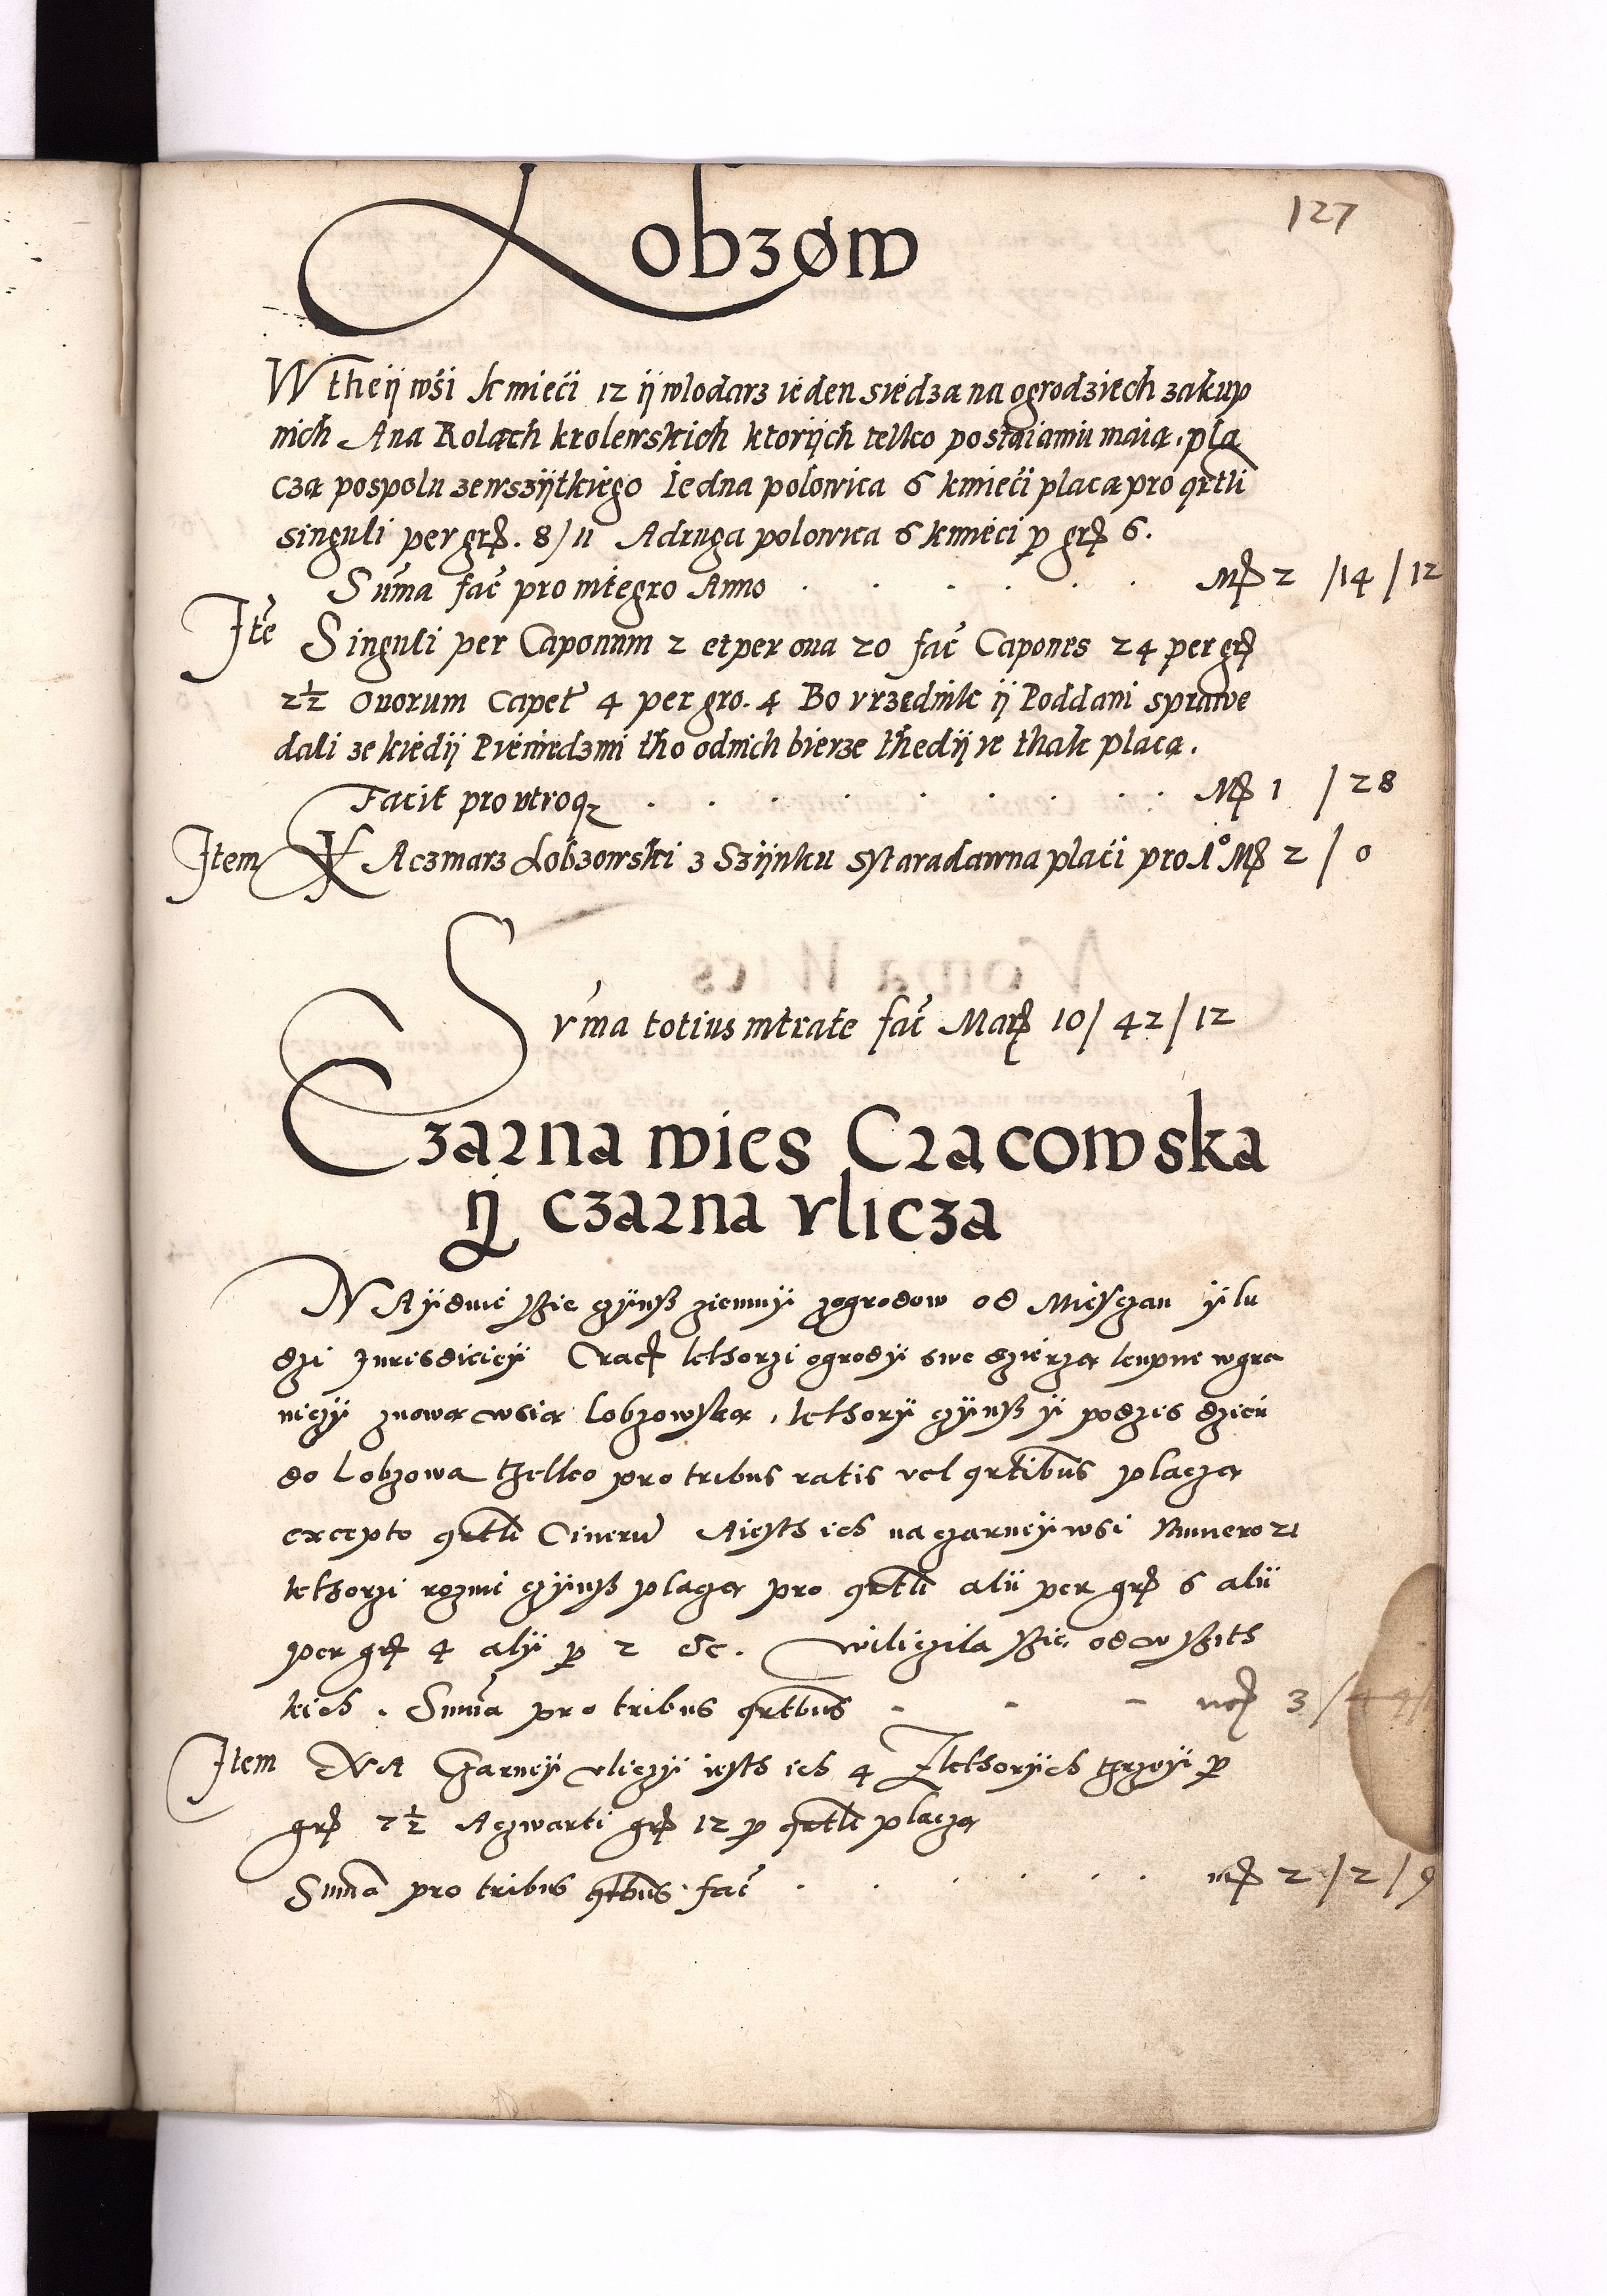 127
Lobzøw
W theÿ wśi kmieći 12 ÿ wlodarz ieden siedza na ogrodziech zakup
nich Ana Rolach krolewskich ktorÿch telko postaiamii maią, pla
czą pospolu zewszÿtkiego Iedna polowica 6 kmieći placą pro qrtli
singuli per grß. 8/11 Adruga polowica 6 kmieci p grß 6.
Suma fac pro integro Anno . . . . . . Mß 2 /14 /12
Ite Singuli per Caponum 2 et per oua 20 fac Capones 24 per grß
2½ Ouorum Capet 4 per gro. 4 Bo vrzednik ÿ Poddani sprawe
dali ze kiedÿ Pieniedzmi tho odnich bierze thedÿ ie thak placą.
Facit pro utroq . . . . . . . . Mß 1 /28
Item KAczmarz Lobzowski z Szÿnku systaradawna placi pro 1° Mß 2 / 0
Suma totius intrate fac Marß 10/ 42/ 12
Czarna wies Cracowska
ÿ czarna vlicza
NAÿduie ssie czÿnss ziemnÿ zogrodow od Miesczan ÿ lu
dzi Jurisdicieÿ Crac kthorzi ogrodÿ swe dzierza kupne wgra
niczÿ znowa wsia Lobzowska, kthorÿ czÿnss ÿ podzis dzien
do Lobzowa tzelko pro tribus ratis vel qrtlibus placza
excepto qrtli Cineru Aiesth ich na czarneÿ wsi Numero 21
kthorzi rozni czÿnss placza pro qrtli alii per grß 6 alii
per grß 4 alÿ p 2 &c. wiliczila ssie od wssith
kich. Suma pro tribus qrtlbus - - - mß 3 /44/
Item NA Czarneÿ vliczÿ iesth ich 4 Zkthorÿch trzeÿ p
grß 7½ Aczwarti grß 12 p qrtli placza
Suma pro tribus qrtlbus fac . . . . . . mß 2 /2 /9